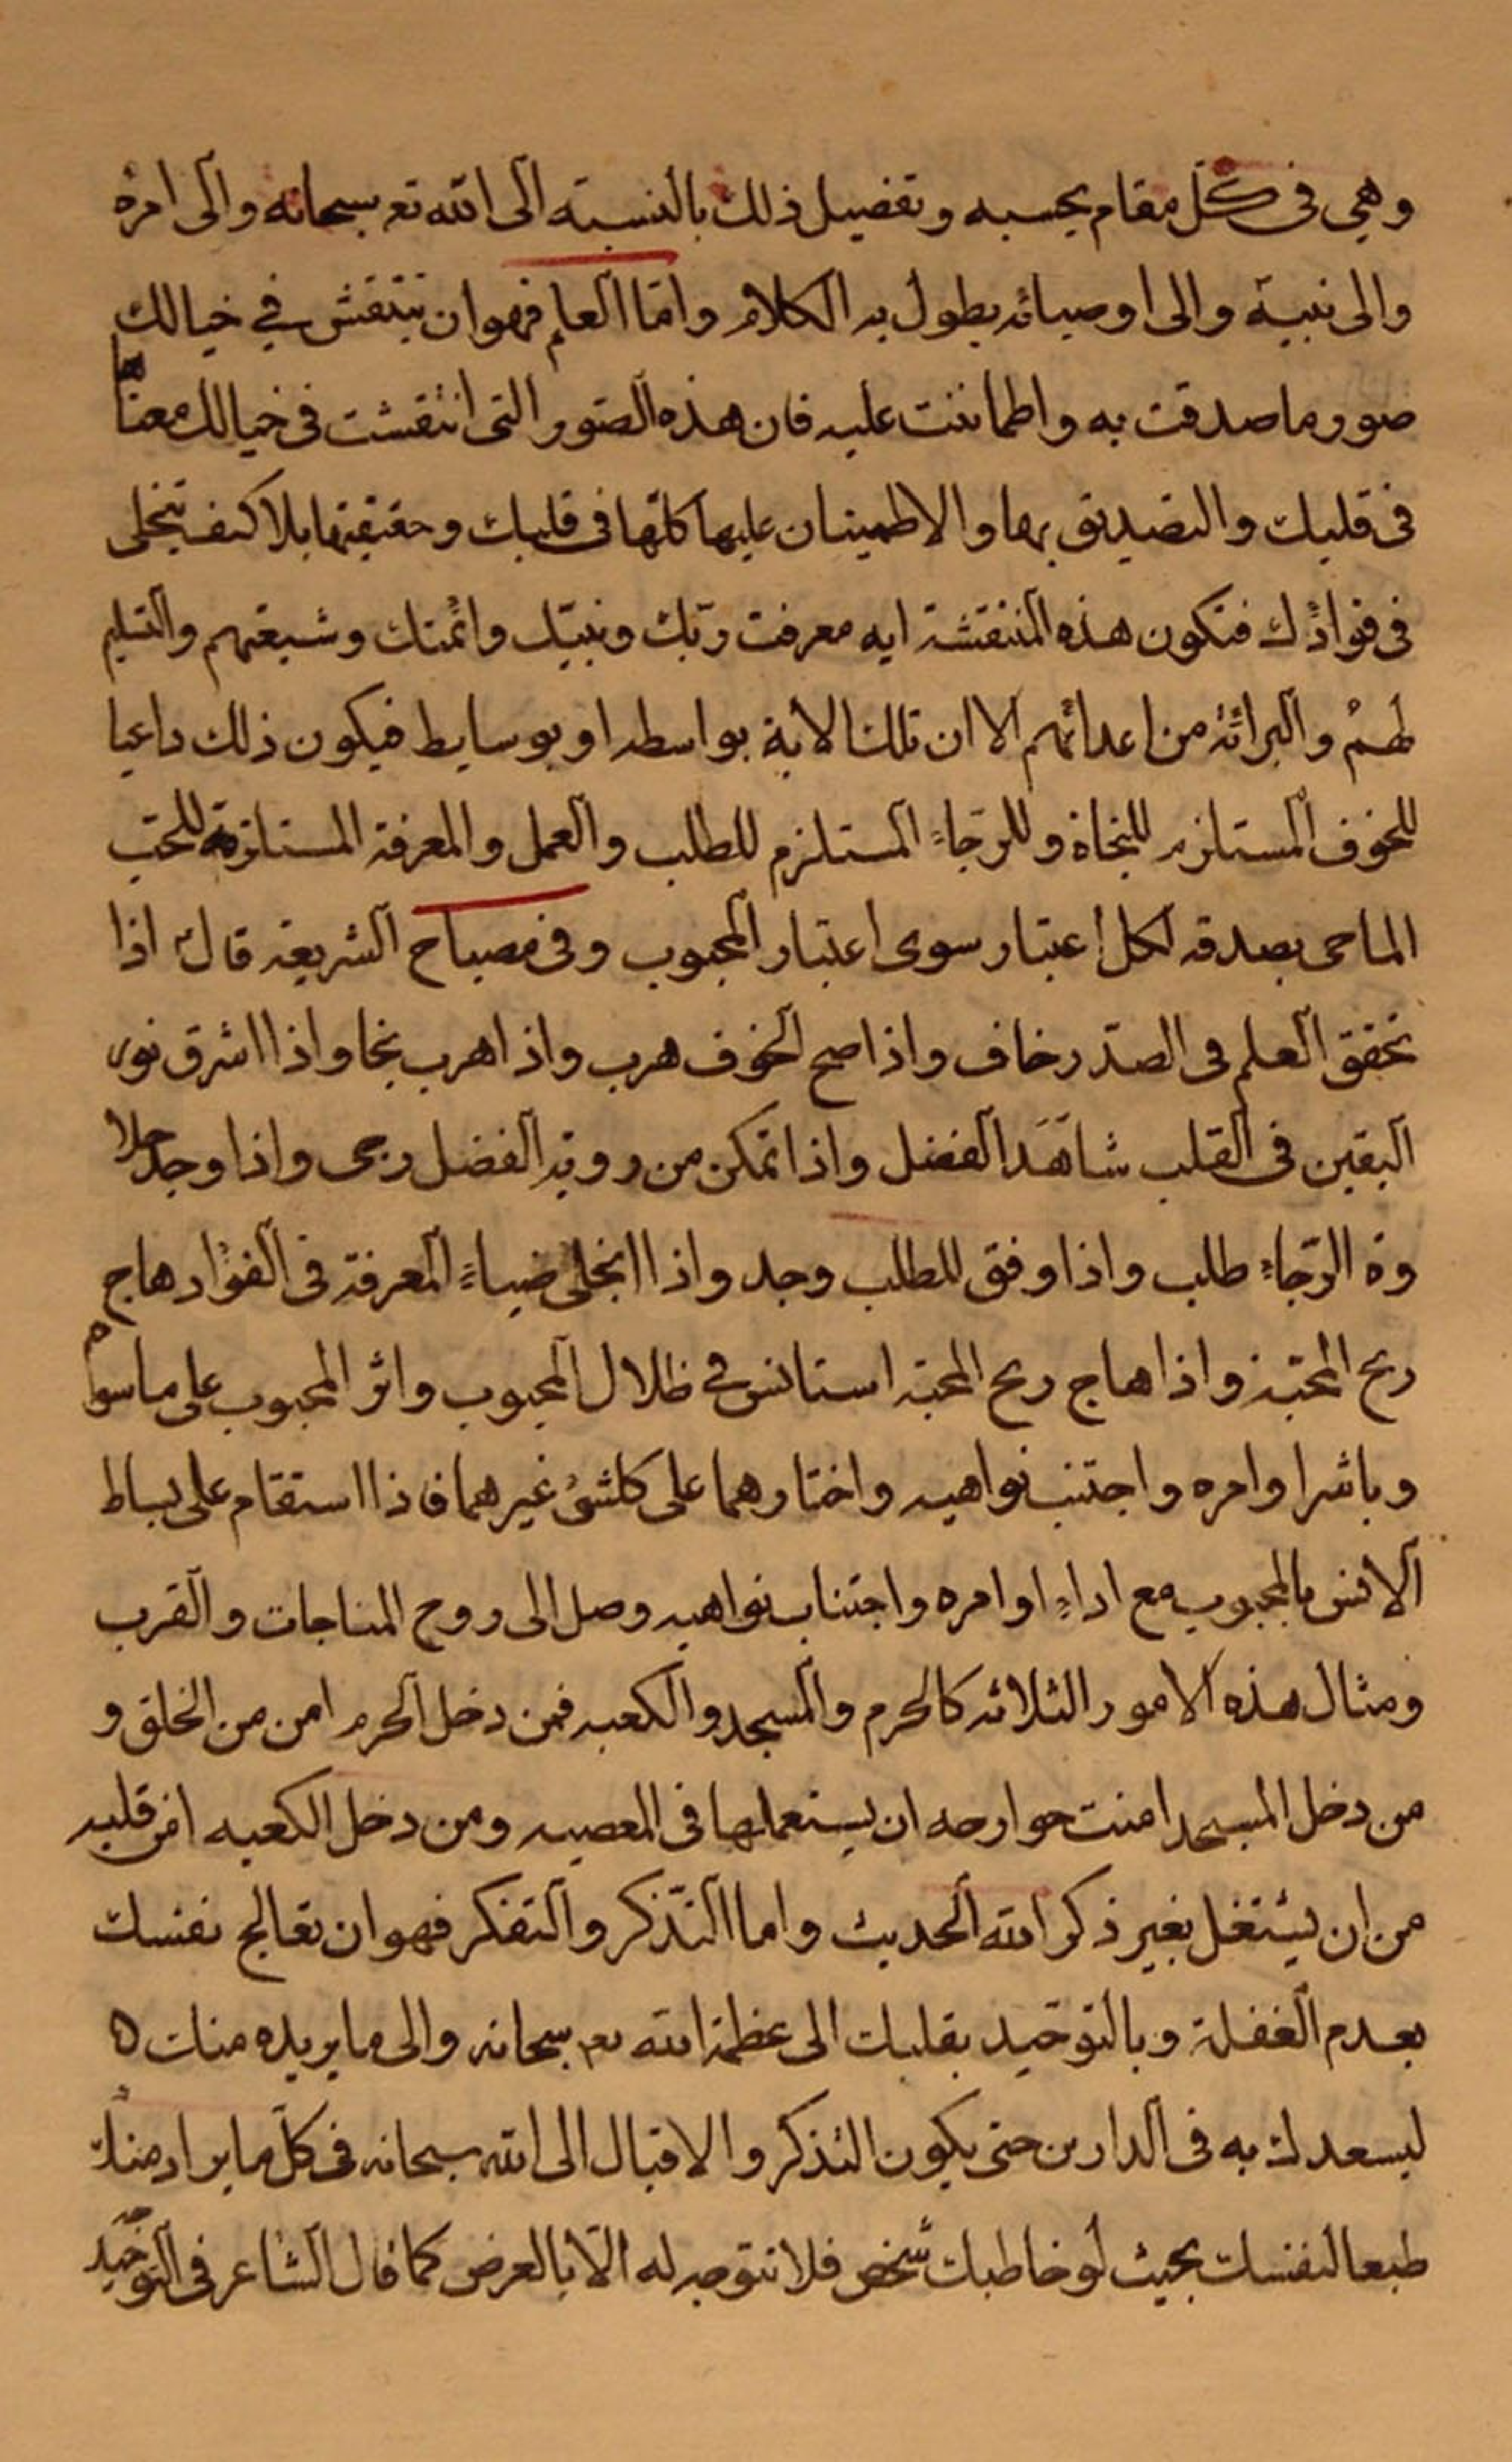 وهي فى كلّ مقام بحسبه وتفصيل ذلك بالنسبته الى الله تع سبحانه والى امره
والى نبيه والى اوصيائه يطول به الكلام وامّا العلم فهو ان ينتقش في خيالك
صور ما صدقت به واطمأننت عليه فان هذه الصور التى انتقشت فى خيالك معنٰاها
فى قلبك والتصديق بها والاطمينان عليها كلّها فى قلبك وحقيقتها بلا كيف يتجلى
فى فؤادك فتكون هذه المنتقشة ايه معرفت ربّك ونبيّك وائمتك وشيعتهم والتسليم
لهم والبرائة من اعدائهم الا ان تلك الاية بواسطه او بوسايط فيكون ذلك داعيا
للخوف المستلزم للنجاة وللرّجاء المستلزم للطلب والعمل والمعرفة المستلزمة للحّب
الماحى بصدقه لكل اعتبار سوى اعتبار المحبوب وفى مصباح الشريعة قال اذا
تحقق العلم فى الصّدر خاف واذا صح الخوف هرب واذا هرب نجا واذا اشرق نور
اليقين فى القلب شاهَدَ الفضل واذا تمكن من روية الفضل رجى واذا وجد حلا
وة الرّجاء طلب واذا وفق للطلب وجد واذا انجلى ضياء المعرفة فى الفؤاد هاج
ريح المحّبة واذا هاج ريح المحبّة استانس في ظلال المحبوب واثر المحبوب على ما سواه
وباشر اوامره واجتنب نواهيه واختارهما على كلشئ غيرهما فاذا استقام على بساط
الانس بالمحبوب مع اداء اوامره واجتناب نواهيه وصل الى روح المناجات والقرب
ومثال هذه الامور الثلاثه كالحرم والمسجد والكعبه فمن دخل الحرم امن من الخلق و
من دخل المسجد امنت جوارحه ان يستعملها فى المعصيه ومن دخل الكعبه امن قلبه
من ان يشتغل بغير ذكر الله الحديث واما التّذكر والتفكر فهو ان تعالج نفسك
بعدم الغفلة وبالتوجّه بقلبك الى عظمة الله تع سبحانه والى ما يريده منك
ليسعدك به فى الدارين حتى يكون التذكر والاقبال الى الله سبحانه فى كلّ ما يراد منك
طبعا لنفسك بحيث لو خاطبك شخص فلا تتوجه له الّا بالعرض كما قال الشاعر فى التوجّه